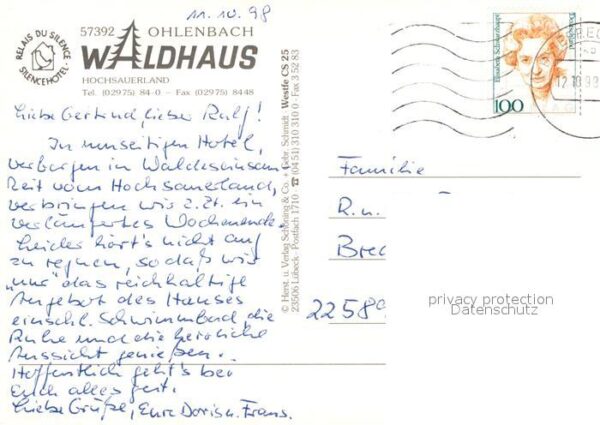 11.10.98
57392 OHLENBACH
WALDHAUS
HOCHSAUERLAND
Tel. (02975) 84-0 – Fax (02975) 8448
RELAIS DU SILENCE
SILENCEHOTEL
Liebe Gertrud, lieber Ralf!
In umseitigen Hotel,
verborgen in Waldeseinsam-
keit vom Hochsauerland,
verbringen wir z. Zt. ein
verlängertes Wochenende.
Leider hört's nicht auf
zu regnen, sodaß wir
"nur" das reichhaltige
Angebot des Hauses
einschl. Schwimmbad, die
Ruhe und die herrliche
Aussicht genießen.
Hoffentlich geht's bei
Euch alles gut.
Liebe Grüße, Eure Doris u. Frans.
© Herst. u. Verlag Schöning & Co. + Gebr. Schmidt Westfe CS 25
23506 Lübeck · Postfach 1710 ☎ (0451) 310 310 0 · Fax 3 52 83
Elisabeth Schwarzhaupt
Deutschland
100
12.10.98
Familie
R. u.
Brec
22589
privacy protection
Datenschutz